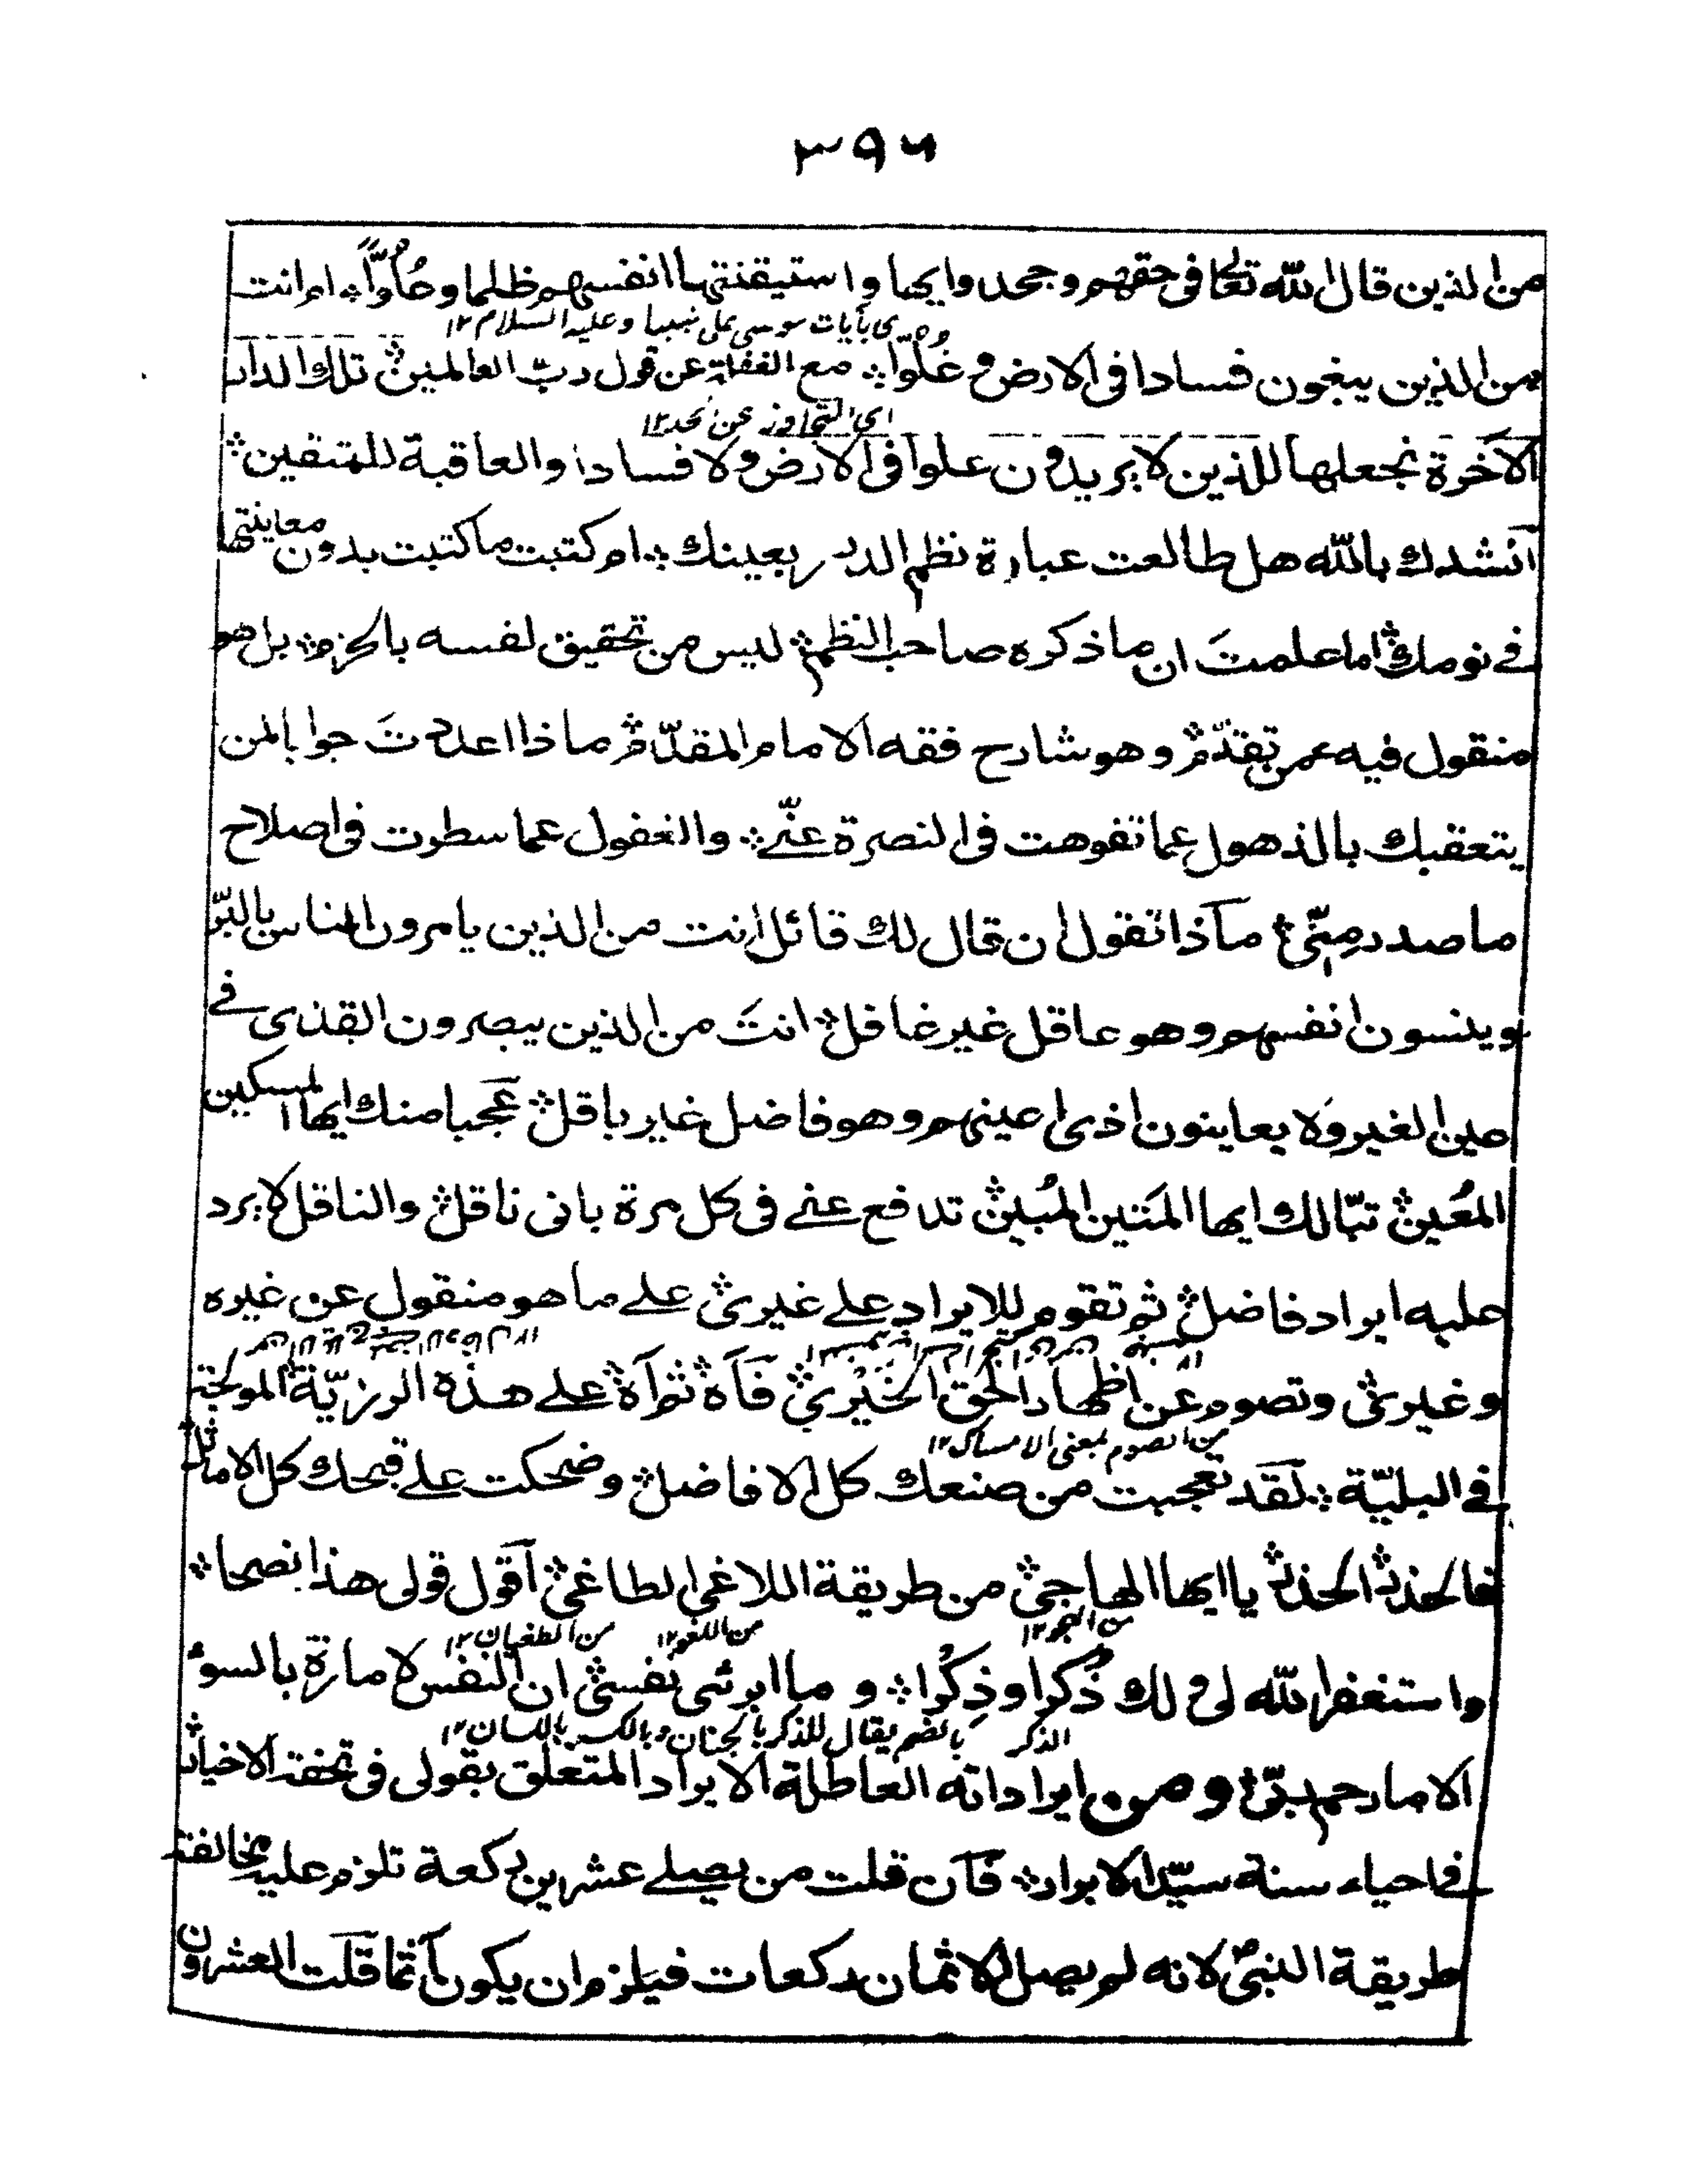 ٣٩٦
من الذين قال الله تعالى فى حقهم وجحدوا بها واستيقنتها انفسهم ظلما وعُلُوّاً ؞ ام انت
اى بآيات موسى على نبينا وعليه السلام ١٢
من الذين يبغون فسادا فى الارض وغُلُوّا ؞ مع الغفلة عن قول رب العالمين ؞ تلك الدار
اى التجاوز عن الحد ١٢
الآخرة نجعلها للذين لا يريدون علوا فى الارض ولا فسادا والعاقبة للمتقين ؞
آنشدك بالله هل طالعت عبارة نظم الدرر بعينك ؞ ام كتبت ما كتبت بدون معاينتها
فے نومك ؞ اما علمتَ ان ما ذكره صاحب النظم ؞ ليس من تحقيق لفسه بالحزم ؞ بل هو
منقول فيه عمن تقدّم ؞ وهو شارح فقه الامام المقدّم ؞ ما ذا اعددتَ جوابا لمن
يتعقبك بالذهول عما تفوهت فى النصرة عنّے ؞ والغفول عما سطرت فى اصلاح
ما صدر مِنّى ؞ مآذا تقول ان قال لك قائل انت من الذين يامرون الناس بالبرّ
وينسون انفسهم وهو عاقل غير غافل ؞ انتَ من الذين يبصرون القذى فے
عين الغير ولا يعاينون اذى اعينهم وهو فاضل غير باقل ؞ عَجبا منك ايها المسكين
المُعين ؞ تبّا لك ايها المَتين المُبين ؞ تدافع عنے فى كل مرة بانى ناقل ؞ والناقل لا يرد
عليه ايراد فاضل ؞ ثم تقوم للايراد علے غيرى ؞ علے ما هو منقول عن غيره
وغيرى ؞ وتصوم عن اظهار الحق الخَيْرى ؞ فَآه ؞ ثم آه ؞ علے هذه الرزيّة ؞ المولجة
من الصوم بمعنى الامساك ١٢
فے البليّة ؞ لَقد تعجبت من صنعك كل الافاضل ؞ وضحكت علے قبحك كل الاماثل ؞
فالحذر ؞ الحذر ؞ يا ايها الهاجى ؞ من طريقة اللاغى الطاغى ؞ آقول قولى هذا نصحا ؞
من الهجو ١٢ من اللغو ١٢ من الطغيان ١٢
واستغفر الله لى ولك ذُكرا وذِكْرا ؞ و ما ابرئى نفسى ؞ ان النفس لامارة بالسوء
الذكر بالضم يقال للذكر بالجنان وبالكسر باللسان ١٢
الا ما رحم ربّى ؞ ومن ايراداته العاطلة الايراد المتعلق بقولى فى تحفة الاخيار ؞
فے احياء سنة سيّد الابرار ؞ فَآن قلت من يصلے عشرين ركعة تلزم عليه مخالفة
طريقة النبىؐ لانه لم يصل الا ثمان ركعات فيلزم ان يكون آثما قلَت العشرون